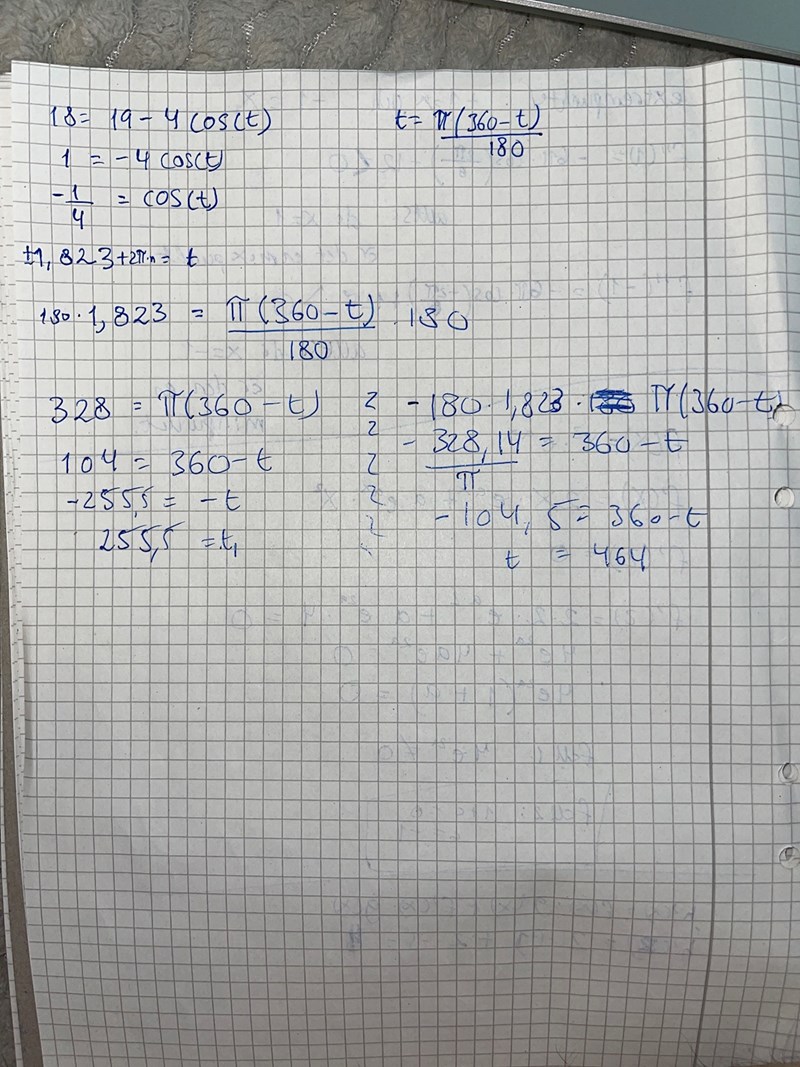 18 = 19 - 4 cos(t)
t = π(360 - t) / 180
1 = -4 cos(t)
-1/4 = cos(t)
±1,823 + 2π·n = t
180 · 1,823 = π(360 - t) / 180 · 180
328 = π(360 - t)
104 = 360 - t
-255,5 = -t
255,5 = t₁
-180 · 1,823 · π(360 - t)
-328,14 / π = 360 - t
-104,5 = 360 - t
t = 464